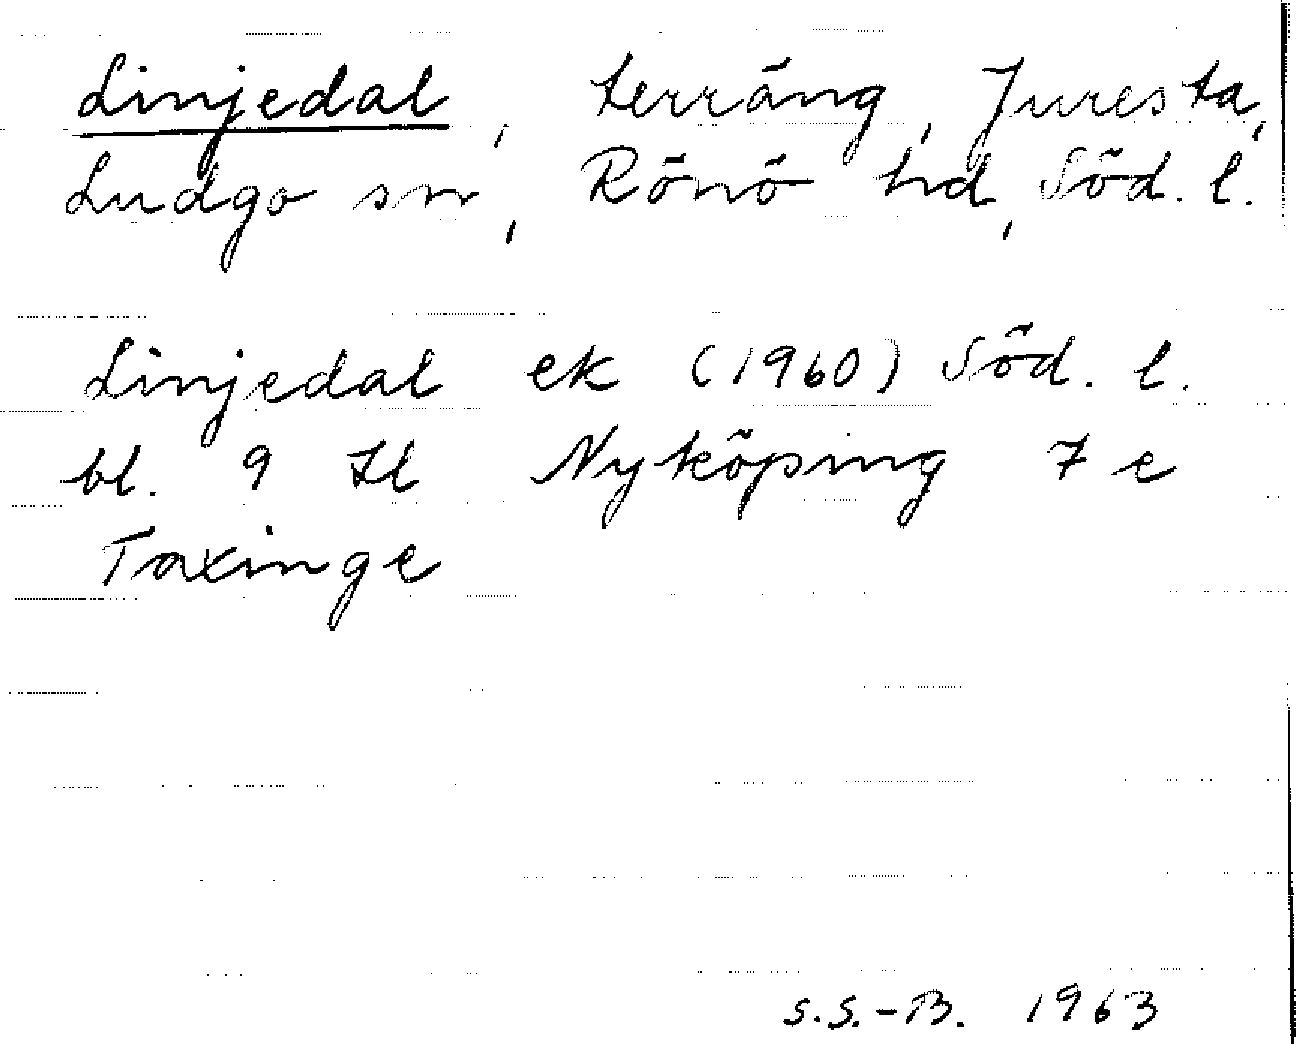 Linjedal, terräng, Juresta,
Ludgo sn, Rönö hd, Söd. l.
Linjedal ek (1960) Söd. l.
bl. 9 tl Nyköping 7 e
Taxinge
S.S.-B. 1963